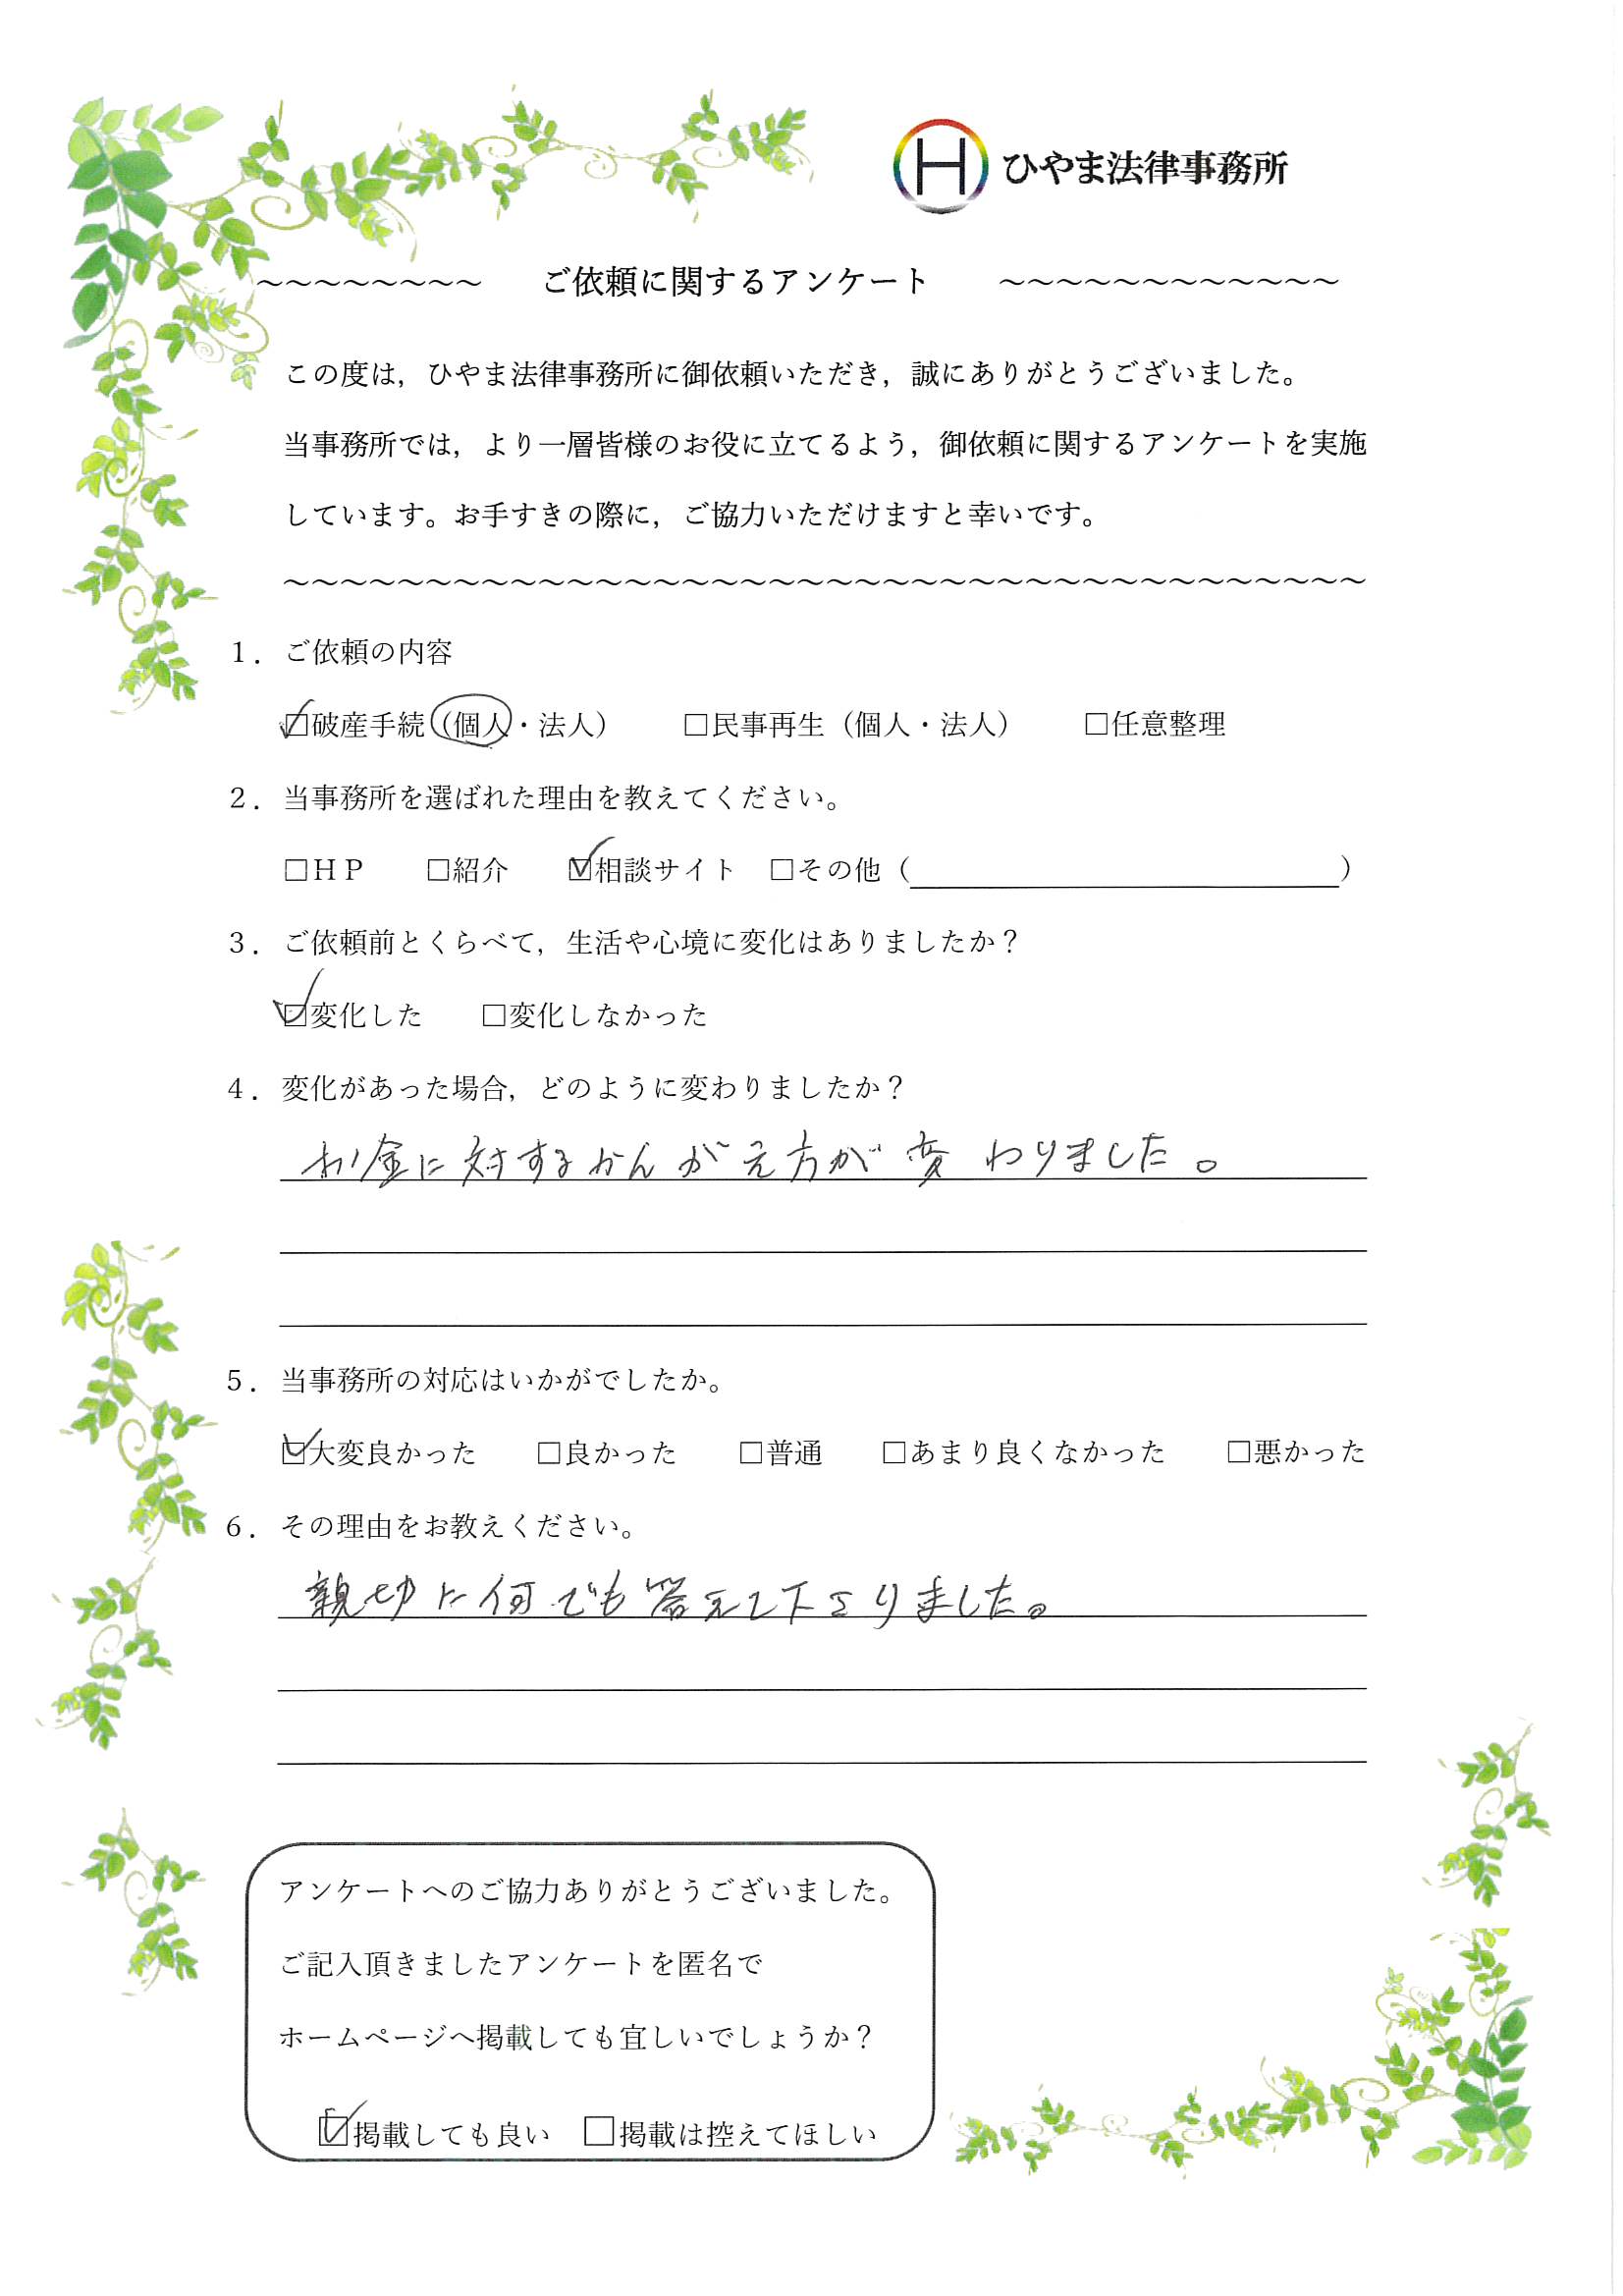 H ひやま法律事務所
～～～～～～～～ ご依頼に関するアンケート ～～～～～～～～～～～～
この度は，ひやま法律事務所に御依頼いただき，誠にありがとうございました。
当事務所では，より一層皆様のお役に立てるよう，御依頼に関するアンケートを実施
しています。お手すきの際に，ご協力いただけますと幸いです。
～～～～～～～～～～～～～～～～～～～～～～～～～～～～～～～～～～～～～～
１．ご依頼の内容
☑破産手続（個人・法人） □民事再生（個人・法人） □任意整理
２．当事務所を選ばれた理由を教えてください。
□ＨＰ □紹介 ☑相談サイト □その他（ ）
３．ご依頼前とくらべて，生活や心境に変化はありましたか？
☑変化した □変化しなかった
４．変化があった場合，どのように変わりましたか？
お金に対するかんがえ方が変わりました。
５．当事務所の対応はいかがでしたか。
☑大変良かった □良かった □普通 □あまり良くなかった □悪かった
６．その理由をお教えください。
親切に何でも答えて下さりました。
アンケートへのご協力ありがとうございました。
ご記入頂きましたアンケートを匿名で
ホームページへ掲載しても宜しいでしょうか？
☑掲載しても良い □掲載は控えてほしい